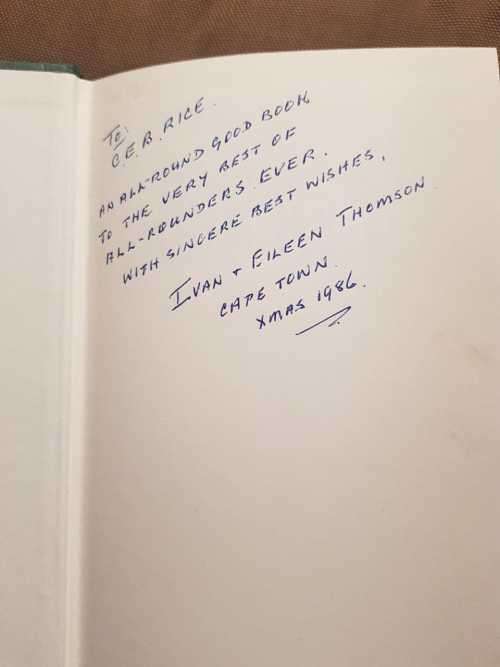 To:
C.E.B. RICE.
AN ALL-ROUND GOOD BOOK,
TO THE VERY BEST OF
ALL-ROUNDERS EVER.
WITH SINCERE BEST WISHES,
IVAN + EILEEN THOMSON.
CAPE TOWN.
XMAS 1986.